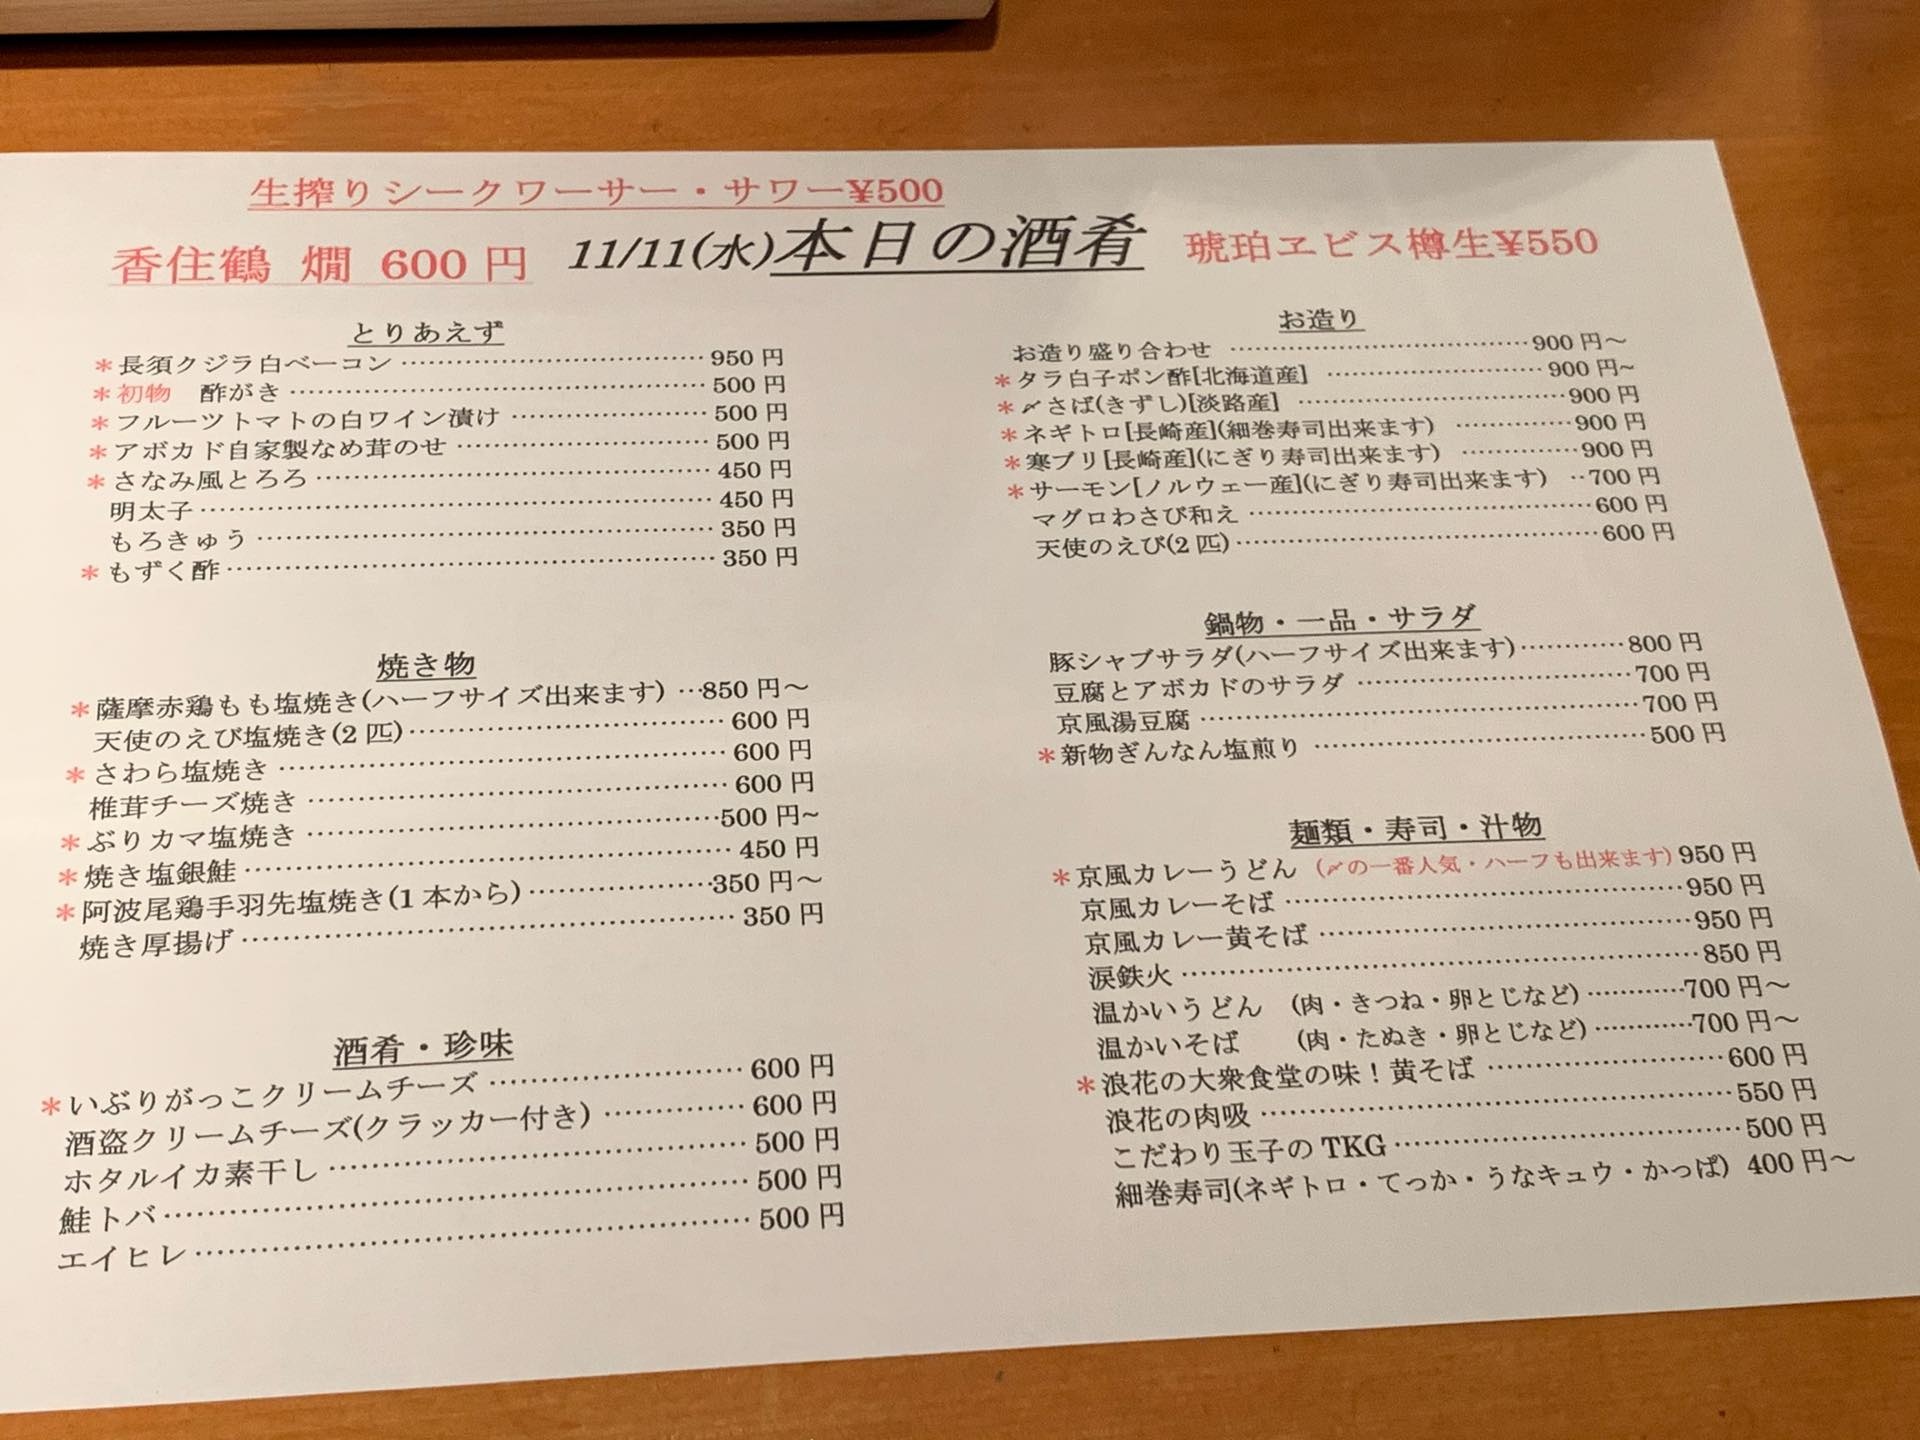 生搾りシークワーサー・サワー¥500
香住鶴 燗 600円
11/11(水)本日の酒肴
琥珀ヱビス樽生¥550
とりあえず
＊長須クジラ白ベーコン……………………………950円
＊初物 酢がき……………………………………500円
＊フルーツトマトの白ワイン漬け…………………500円
＊アボカド自家製なめ茸のせ………………………500円
＊さなみ風とろろ……………………………………450円
明太子………………………………………………450円
もろきゅう…………………………………………350円
＊もずく酢……………………………………………350円
焼き物
＊薩摩赤鶏もも塩焼き(ハーフサイズ出来ます)…850円～
天使のえび塩焼き(2匹)……………………………600円
＊さわら塩焼き………………………………………600円
椎茸チーズ焼き……………………………………600円
＊ぶりカマ塩焼き……………………………………500円~
＊焼き塩銀鮭…………………………………………450円
＊阿波尾鶏手羽先塩焼き(1本から)………………350円～
焼き厚揚げ…………………………………………350円
酒肴・珍味
＊いぶりがっこクリームチーズ……………………600円
酒盗クリームチーズ(クラッカー付き)……………600円
ホタルイカ素干し…………………………………500円
鮭トバ………………………………………………500円
エイヒレ……………………………………………500円
お造り
お造り盛り合わせ…………………………………900円～
＊タラ白子ポン酢[北海道産]………………………900円~
＊〆さば(きずし)[淡路産]…………………………900円
＊ネギトロ[長崎産](細巻寿司出来ます)……………900円
＊寒ブリ[長崎産](にぎり寿司出来ます)……………900円
＊サーモン[ノルウェー産](にぎり寿司出来ます)‥700円
マグロわさび和え…………………………………600円
天使のえび(2匹)……………………………………600円
鍋物・一品・サラダ
豚シャブサラダ(ハーフサイズ出来ます)…………800円
豆腐とアボカドのサラダ…………………………700円
京風湯豆腐…………………………………………700円
＊新物ぎんなん塩煎り………………………………500円
麺類・寿司・汁物
＊京風カレーうどん(〆の一番人気・ハーフも出来ます)950円
京風カレーそば……………………………………950円
京風カレー黄そば…………………………………950円
涙鉄火………………………………………………850円
温かいうどん (肉・きつね・卵とじなど)…………700円～
温かいそば (肉・たぬき・卵とじなど)…………700円～
＊浪花の大衆食堂の味！黄そば……………………600円
浪花の肉吸…………………………………………550円
こだわり玉子のTKG………………………………500円
細巻寿司(ネギトロ・てっか・うなキュウ・かっぱ) 400円～